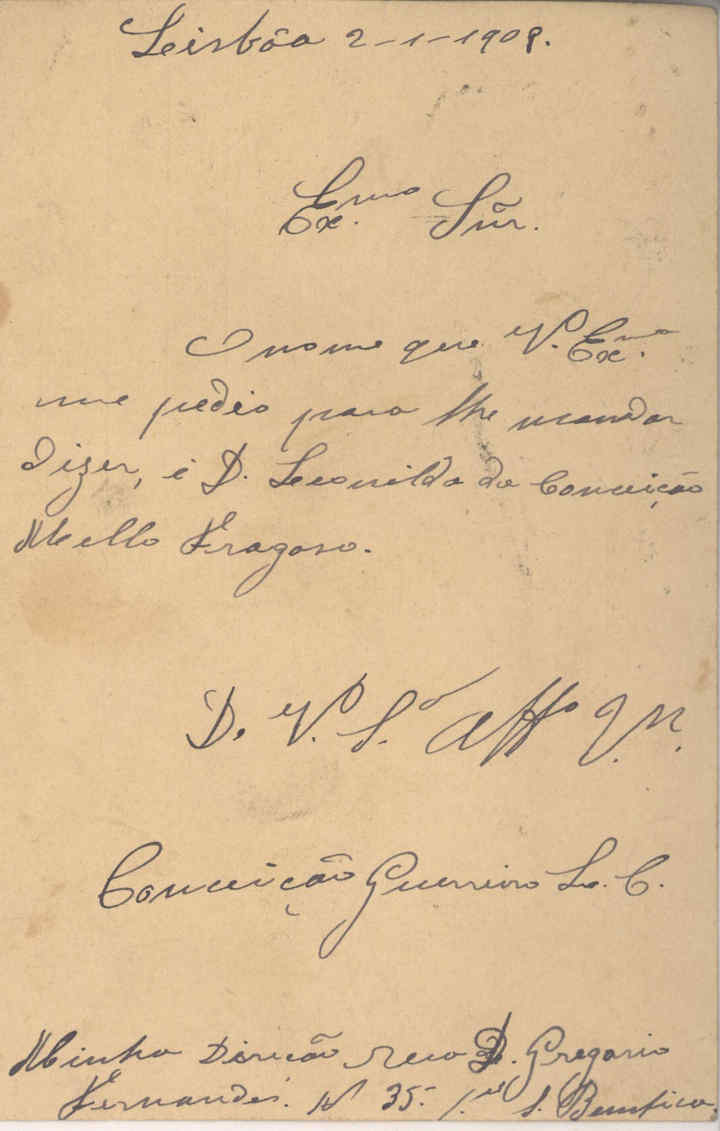 Lisbôa 2-1-1908.
Ex.mo Sñr.
O nome que V. Ex.ma
me pedio para lhe mandar
dizer, é D. Leonilda da Conceição
Mello Fragoso.
D. V. S.a Aff.o
Conceição Guerreiro L. C.
Minha Direcão Rua D. Gregorio
Fernandes. Nº 35-1.º S. Bemfica.